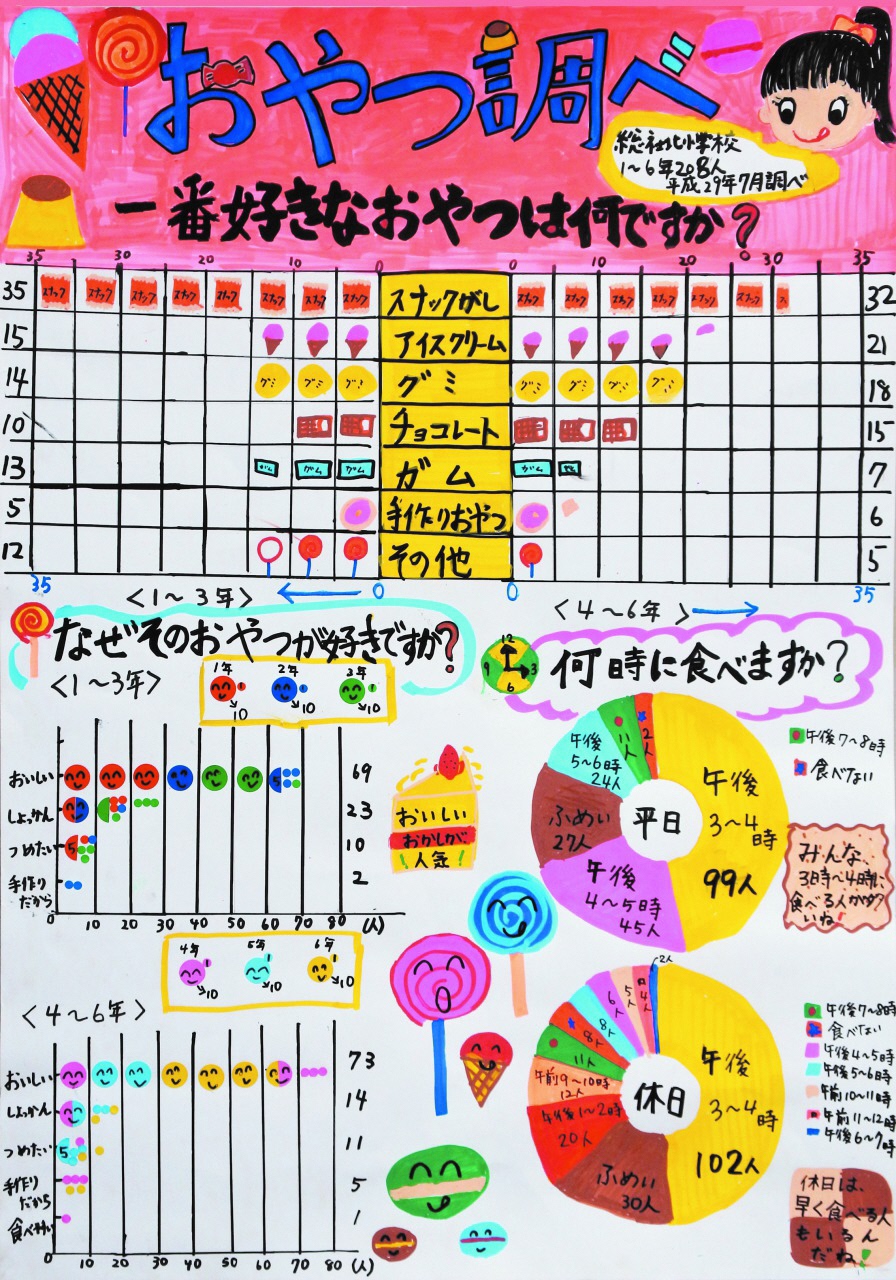 おやつ調べ
総社北小学校
1～6年208人
平成29年7月調べ
一番好きなおやつは何ですか？
35 30 20 10 0 0 10 20 30 35
35 スナック スナック スナック スナック スナック スナック スナック スナック スナックがし スナック スナック スナック スナック スナック スナック 32
15 アイスクリーム 21
14 グミ グミ グミ グミ グミ グミ グミ グミ 18
10 チョコレート 15
13 ガム ガム ガム ガム ガム 7
5 手作りおやつ 6
12 その他 5
35 0 0 35
<1～3年> <4～6年>
なぜそのおやつが好きですか？
<1～3年>
1年 2年 2年
1 1 1
10 10 10
おいしい 5 69
しょっかん 23
つめたい 5 10
手作りだから 2
0 10 20 30 40 50 60 70 80 (人)
おいしい
おかしが
人気！
4年 5年 6年
1 1 1
10 10 10
<4～6年>
おいしい 73
しょっかん 14
つめたい 5 11
手作りだから 5
食べやすい 1
0 10 20 30 40 50 60 70 80 (人)
12
9 3
6
何時に食べますか？
平日
午後
3～4時
99人
午後
4～5時
45人
ふめい
27人
午後
5～6時
24人
11人
2人
午後7～8時
食べない
みんな、
3時～4時に
食べる人が多
いね！
休日
午後
3～4時
102人
ふめい
30人
午後1～2時
20人
午前9～10時
12人
11人
8人
8人
6人
5人
4人
2人
午後7～8時
食べない
午後4～5時
午後5～6時
午前10～11時
午前11～12時
午後6～7時
休日は、
早く食べる人
もいるん
だね！